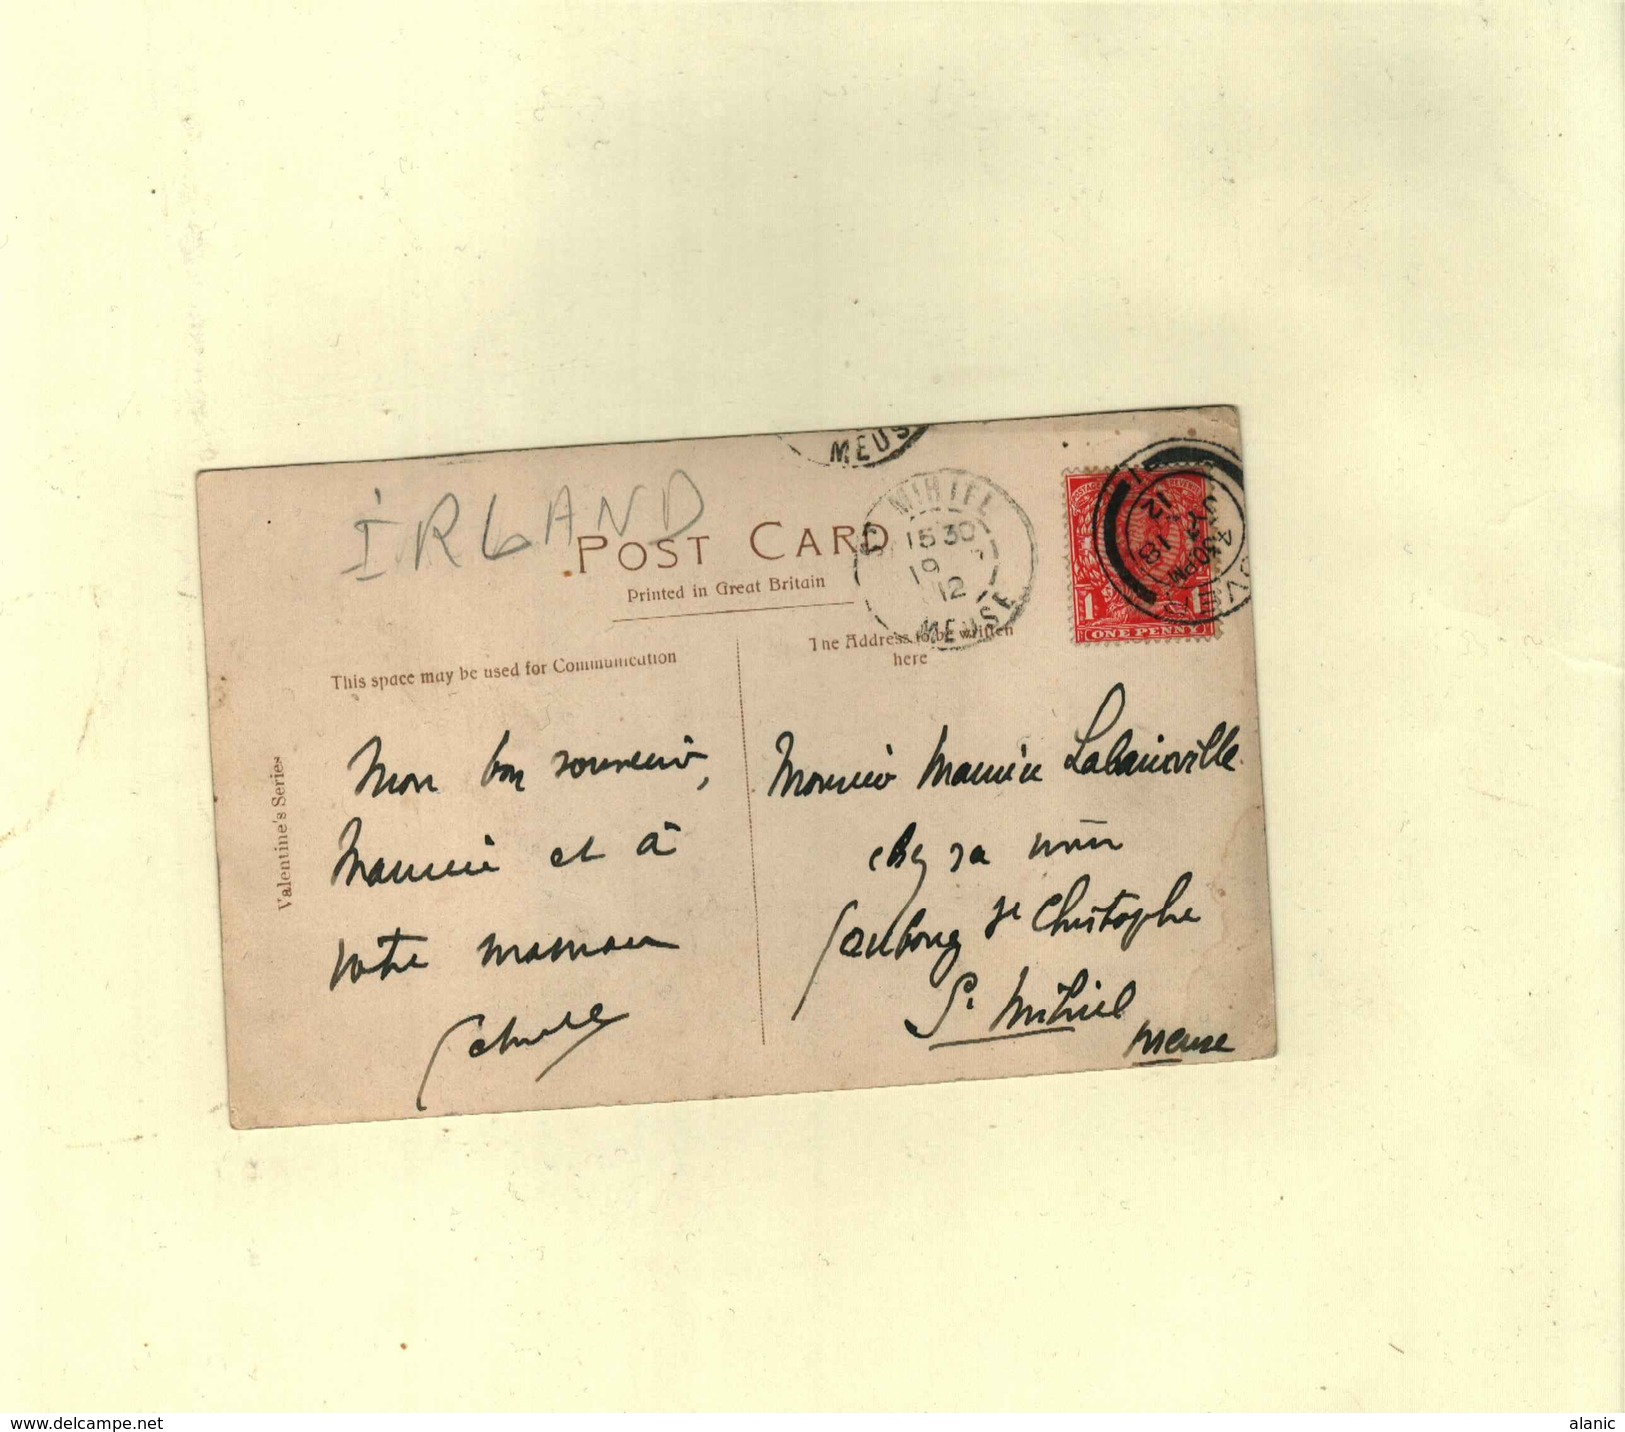 MEUS
IRLAND
POST CARD
Printed in Great Britain
MIHIEL
15 30
19
12
MEUSE
12
18
30PM
1 1
ONE PENNY
This space may be used for Communication
The Address to be written
here
Valentine's Series
Mon bon souvenir,
Maurice et à
votre maman
Monsieur Maurice
chez sa mère
faubourg St Christophe
St Mihiel
Meuse
www.delcampe.net
alanic